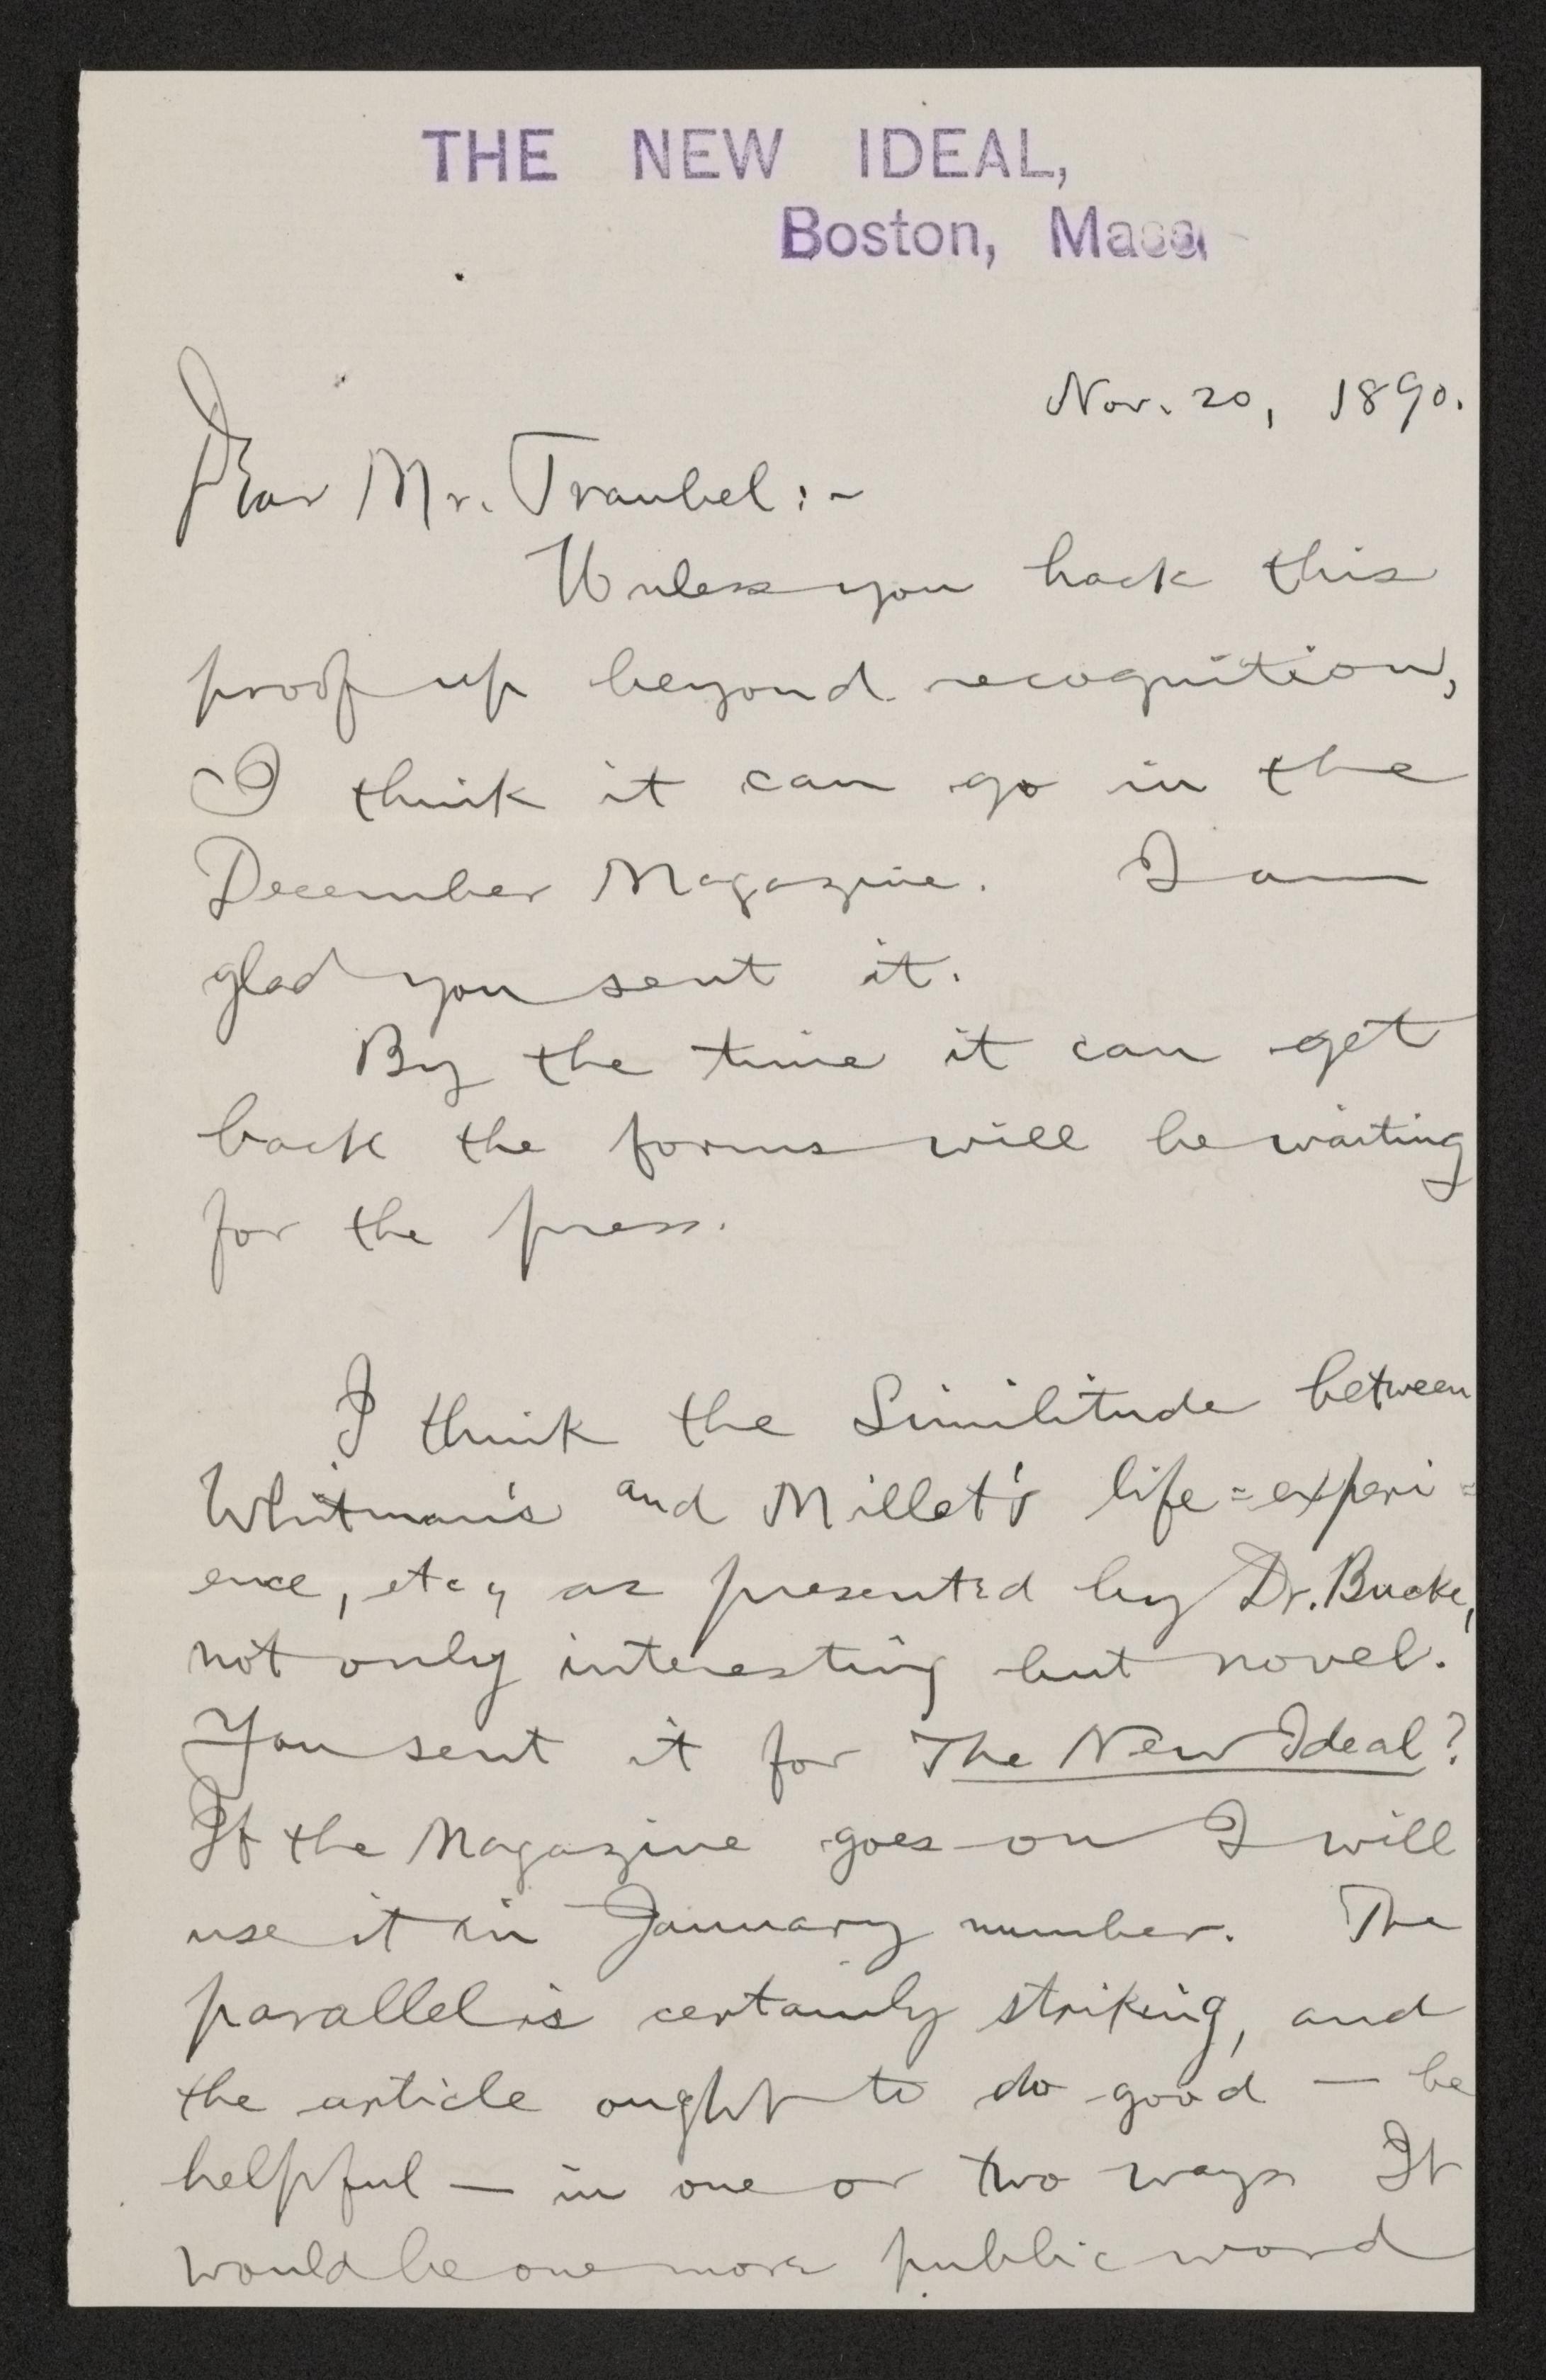 THE NEW IDEAL,
Boston, Mass.
Nov. 20, 1890.
Dear Mr. Traubel:-
Unless you hack this
proof up beyond recognition,
I think it can go in the
December Magazine. I am
glad you sent it.
By the time it can get
back the forms will be waiting
for the press.
I think the Similitude between
Whitman's and Millet's life=experi=
ence, etc, as presented by Dr. Bucke,
not only interesting but novel.
You sent it for The New Ideal?
If the Magazine goes on I will
use it in January number. The
parallel is certainly striking, and
the article ought to do good — be
helpful — in one or two ways It
would be one more public word